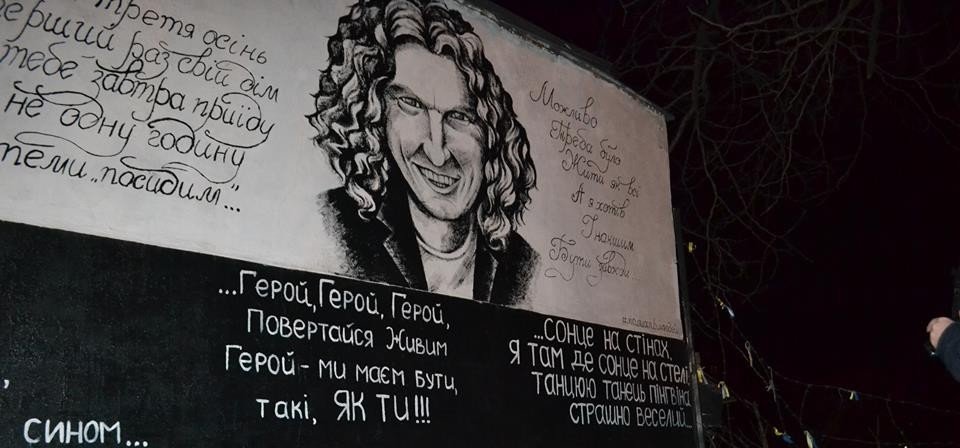 третя осінь
перший раз свій дім
тебе завтра приїду
не одну годину
теми „посидим"...
Можливо
Треба було
Жити як всі
А я хотів
Інакшим
Бути завжди...
...ГЕРОЙ, ГЕРОЙ, ГЕРОЙ,
ПОВЕРТАЙСЯ ЖИВИМ
ГЕРОЙ - МИ МАЄМ БУТИ,
ТАКІ, ЯК ТИ!!!
...СОНЦЕ НА СТІНАХ,
Я ТАМ ДЕ СОНЦЕ НА СТЕЛІ,
ТАНЦЮЮ ТАНЕЦЬ ПІНГВІНА
СТРАШНО ВЕСЕЛИЙ...
,
СИНОМ...